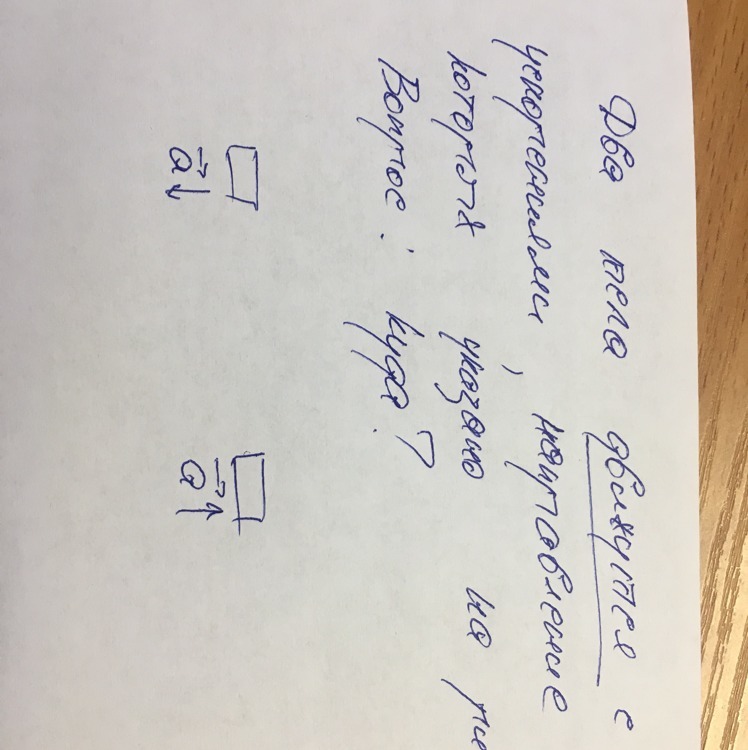 Два тела движутся с
ускорениями, направление
которых указано на
Вопрос: куда?
a⃗ a⃗